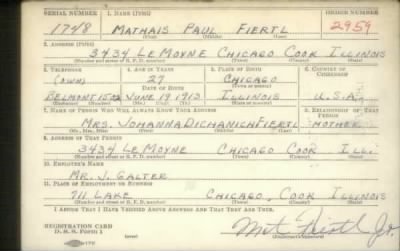 SERIAL NUMBER 1. NAME (Print) ORDER NUMBER
1748 MATHAIS PAUL FIERTL 2959
(First) (Middle) (Last)
2. ADDRESS (Print)
3434 LEMOYNE CHICAGO COOK ILLINOIS
(Number and street or R. F. D. number) (Town) (County) (State)
3. TELEPHONE 4. AGE IN YEARS 5. PLACE OF BIRTH 6. COUNTRY OF CITIZENSHIP
27 CHICAGO
DATE OF BIRTH (Town or county)
BELMONT JUNE 19 1913 ILLINOIS U.S.A.
(Exchange) (Number) (Mo.) (Day) (Yr.) (State or country)
7. NAME OF PERSON WHO WILL ALWAYS KNOW YOUR ADDRESS 8. RELATIONSHIP OF THAT PERSON
MRS. JOHANNA DICHANICH FIERTL MOTHER
(Mr., Mrs., Miss) (First) (Middle) (Last)
9. ADDRESS OF THAT PERSON
3434 LEMOYNE CHICAGO COOK ILL.
(Number and street or R. F. D. number) (Town) (County) (State)
10. EMPLOYER'S NAME
MR. J. GALTER
11. PLACE OF EMPLOYMENT OR BUSINESS
711 LAKE CHICAGO, COOK ILLINOIS
(Number and street or R. F. D. number) (Town) (County) (State)
I AFFIRM THAT I HAVE VERIFIED ABOVE ANSWERS AND THAT THEY ARE TRUE.
REGISTRATION CARD
D. S. S. Form 1